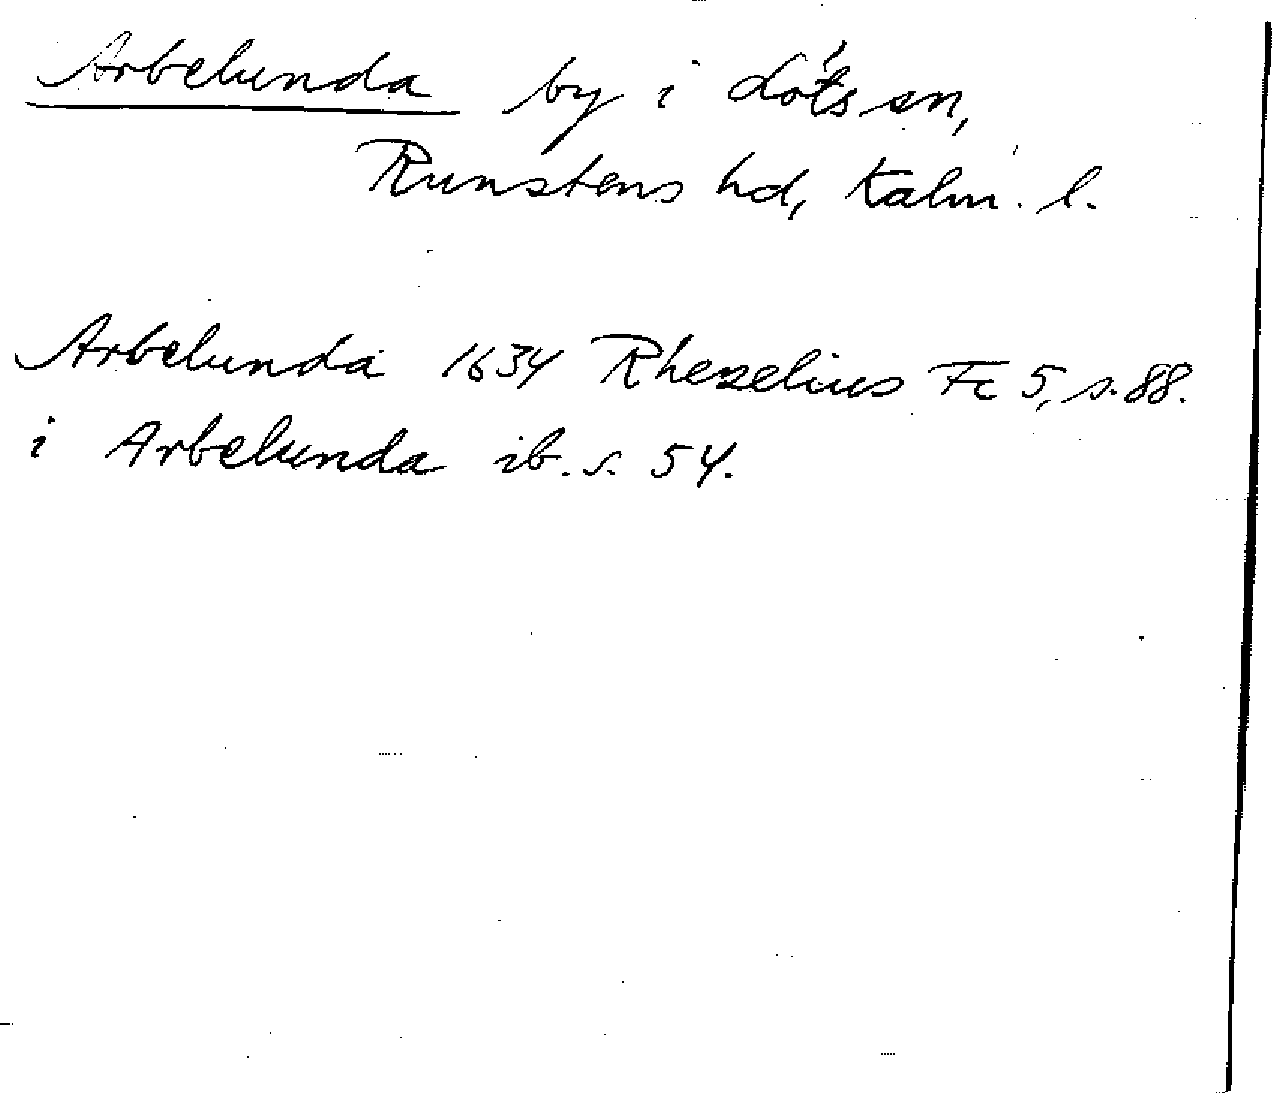 Arbelunda by i Löts sn,
Runstens hd, Kalm. l.
Arbelunda 1634 Rhezelius Fc 5, s. 88.
i Arbelunda ib. s. 54.